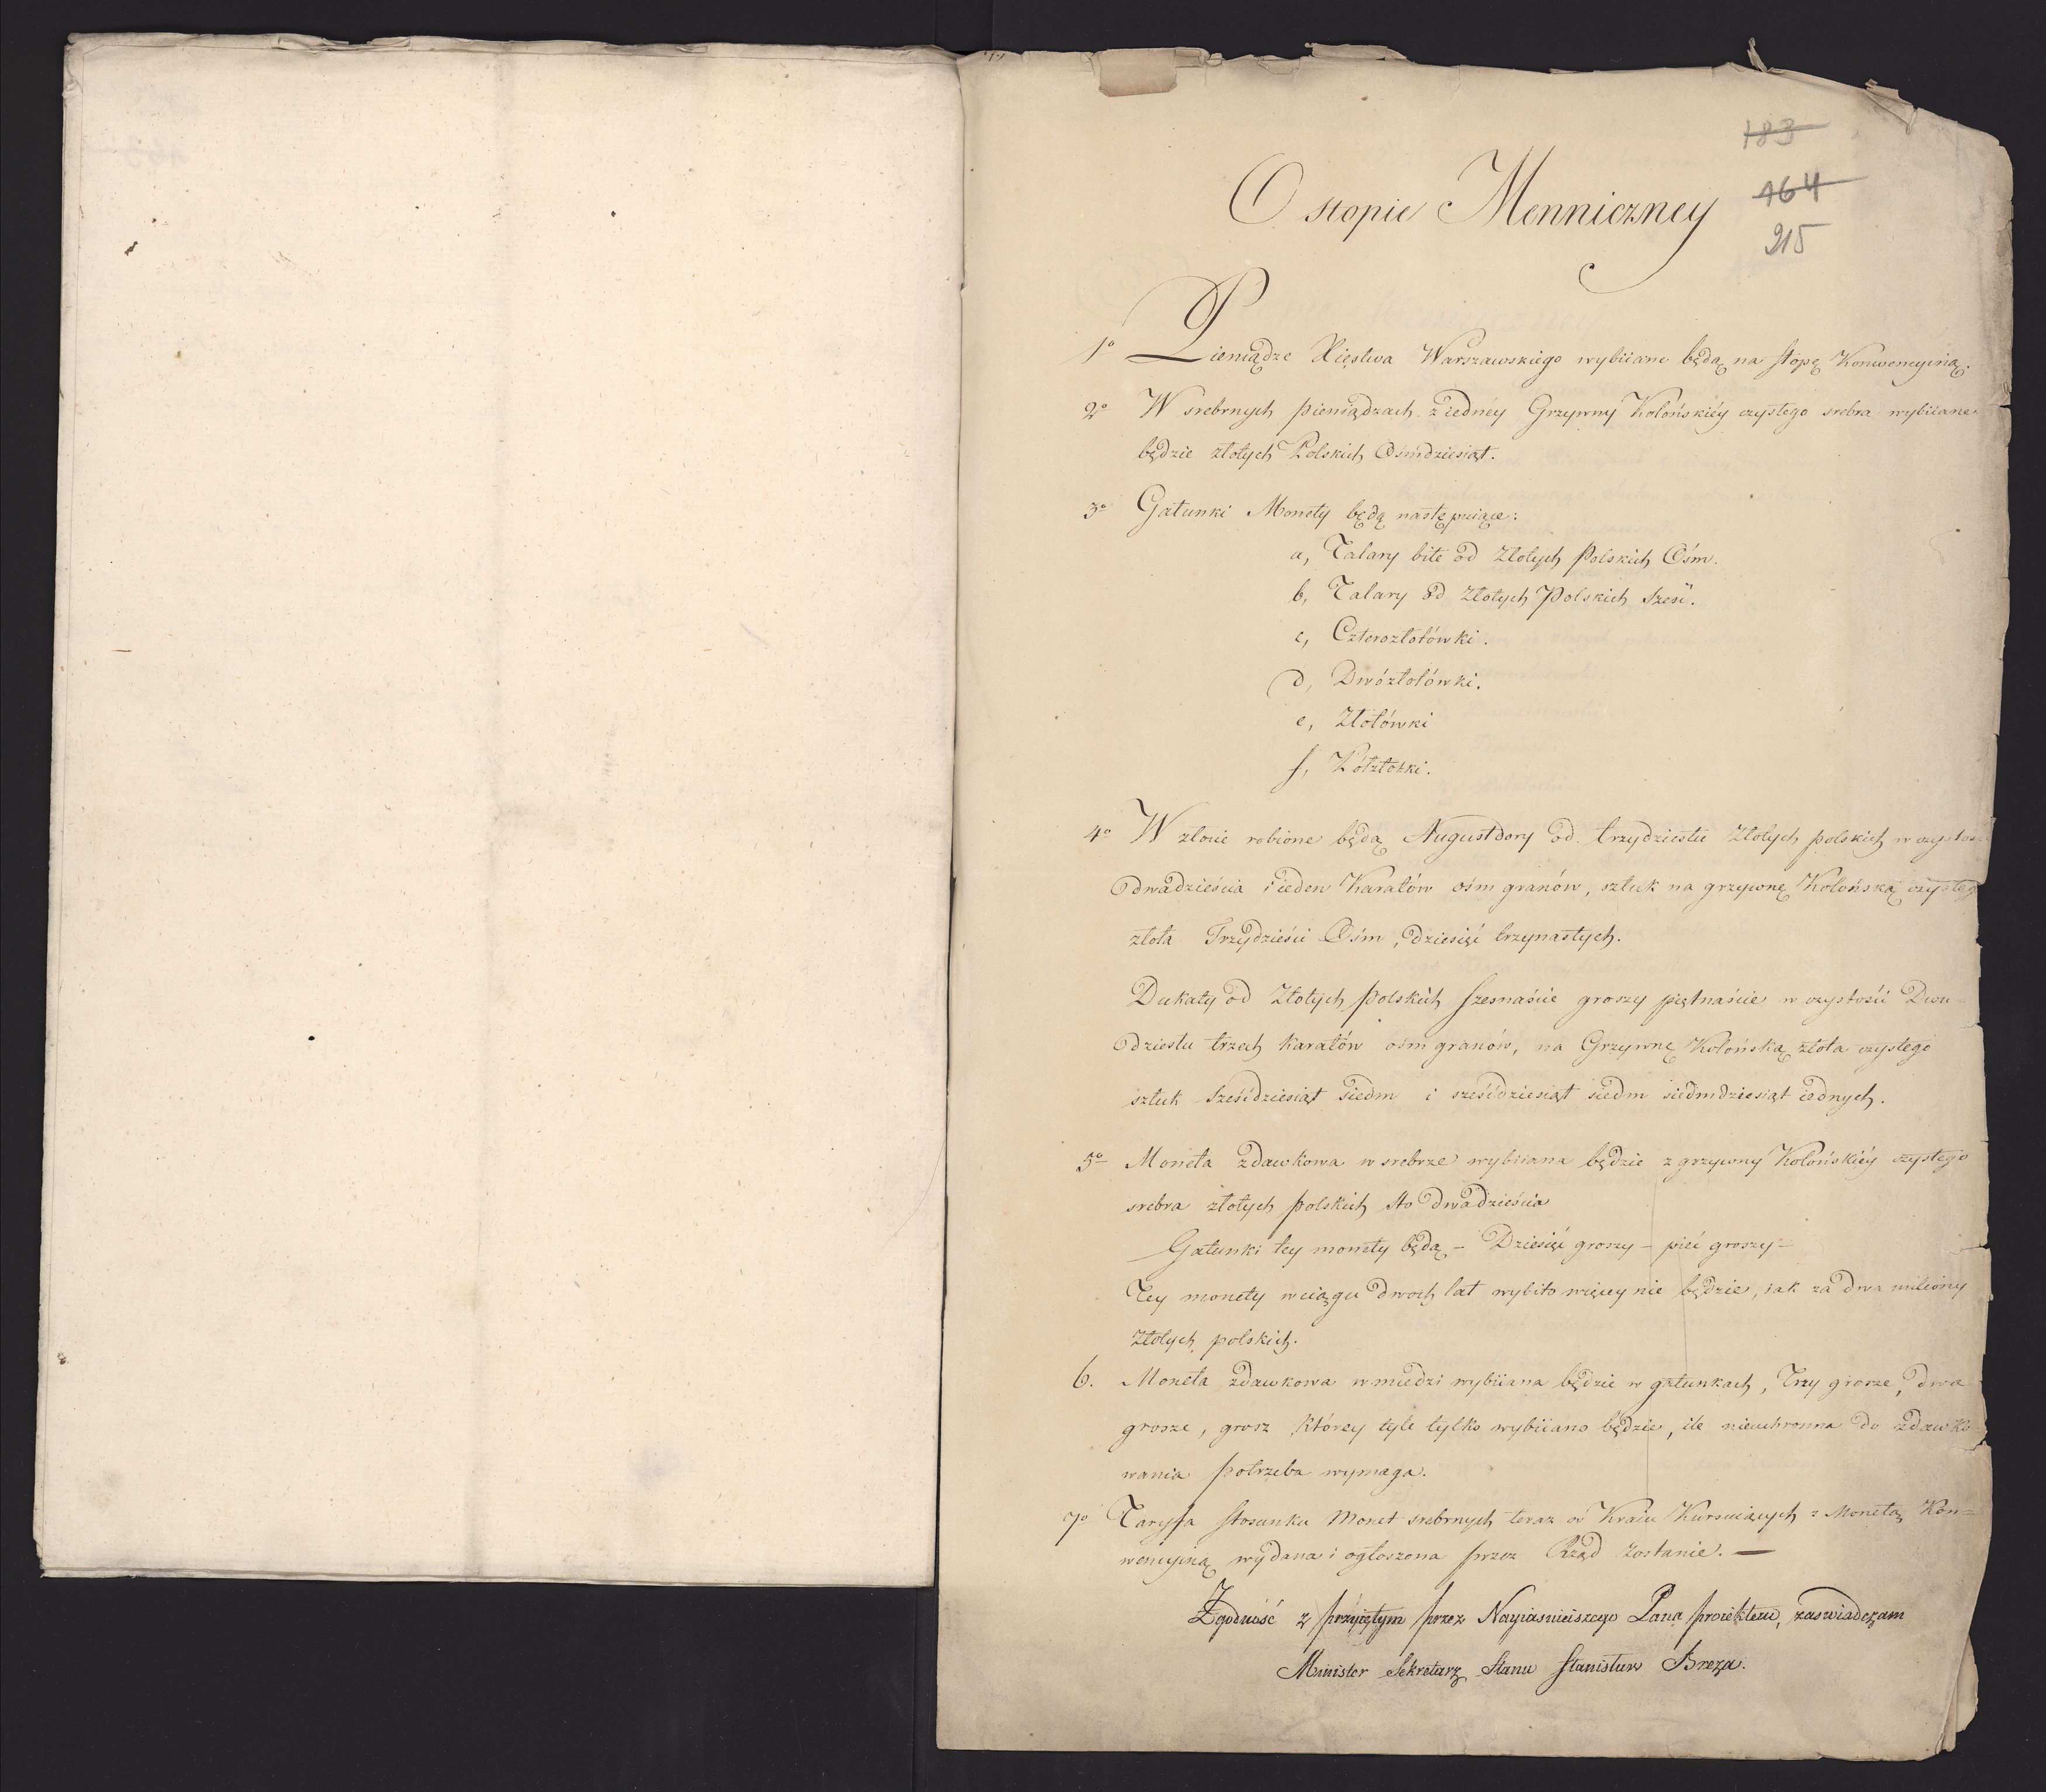 183
164
215
O stopie Menniczney
1o Pieniądze Xięstwa Warszawskiego wybiiane będą na stopę Konwencyiną.
2o W srebrnych pieniądzach z iedney Grzywny Kolońskiéy czystego srebra wybiiane
będzie złotych Polskich Ośmdziesiąt.
3o Gatunki Monety będą następuiące:
a, Talary bite od Złotych Polskich Ośm.
b, Talary od Złotych Polskich Sześć.
c, Czterozłotówki.
d, Dwózłotówki.
e, Złotówki
f, Półzłotki.
4o W złocie robione będą Augustdory od trzydziestu Złotych polskich w czystos
dwadzieścia i ieden Karatów ośm granów, sztuk na grzywnę Kolońską czysteg
złota Trzydzieści Ośm, dziesięć trzynastych.
Dukaty od Złotych polskich szesnaście groszy piętnaście w czystości Dwu-
dziestu trzech karatów ośm granów, na Grzywnę Kolońską złota czystego
sztuk sześćdziesiąt siedm i sześćdziesiąt siedm siedmdziesiąt iednych.
5o Moneta zdawkowa w srebrze wybiiana będzie z grzywny Kolońskiéy czystego
srebra złotych polskich sto dwadzieścia
Gatunki tey monety będą - Dziesięć groszy - pięć groszy -
Tey monety wciągu dwoch lat wybito więcey nie będzie, iak za dwa miliony
Złotych polskich.
6. Moneta zdawkowa w miedzi wybiiana będzie w gatunkach, Trzy grosze, dwa
grosze, grosz którey tyle tylko wybiiano będzie, ile nieuchronna do zdawko-
wania potrzeba wymaga.
7o Taryffa stosunku Monet srebrnych teraz w Kraiu Kursuiących z Monetą Kon=
wencyiną wydana i ogłoszona przez Rząd zostanie. —
Zgodność z przyiętym przez Nayiasnieiszego Pana proiektem, zaswiadczam
Minister Sekretarz Stanu Stanisław Breza.